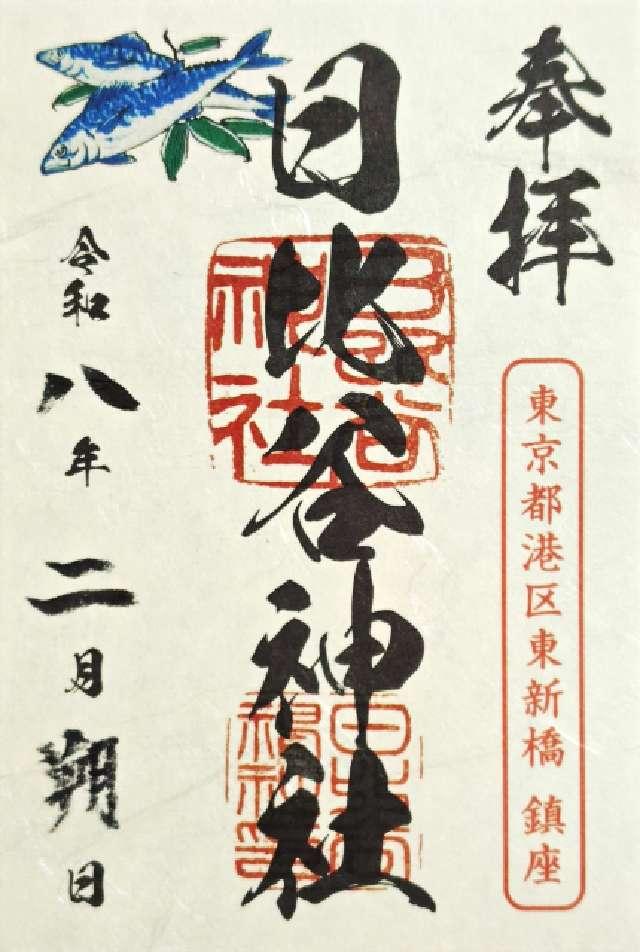 奉拝
東京都港区東新橋 鎮座
日比谷神社
令和八年二月朔日